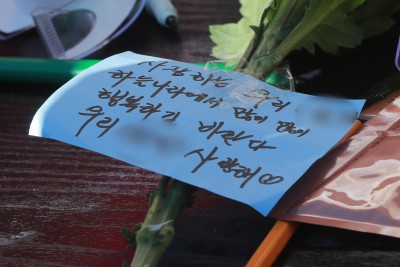 사랑하는 우리
하늘나라에서 많이 많이
행복하기 바란다
우리
사랑해♡